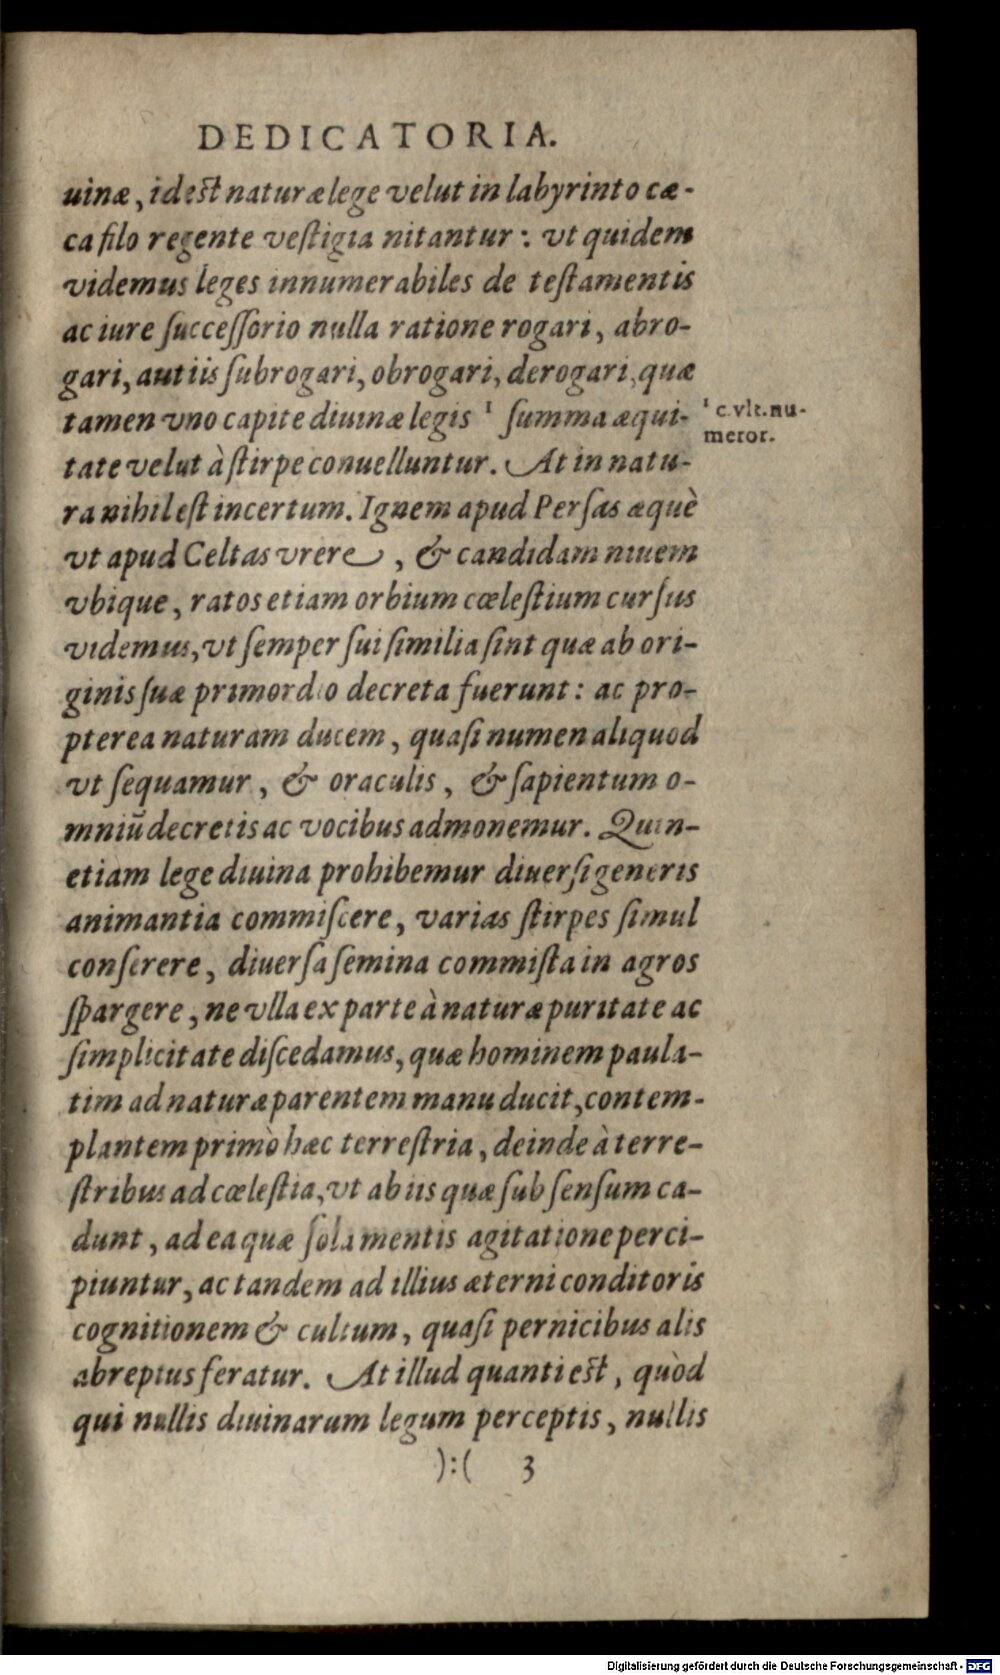 DEDICATORIA.
uinæ, id est naturæ lege velut in labyrinto cæ-
ca filo regente veſtigia nitantur: vt quidem
videmus leges innumerabiles de teſtamentis
ac iure ſucceſſorio nulla ratione rogari, abro-
gari, aut iis ſubrogari, obrogari, derogari, quæ
tamen vno capite diuinæ legis ¹ ſumma æqui-
¹ c. vlt. nu-
meror.
tate velut à ſtirpe conuelluntur. At in natu-
ra nihil eſt incertum. Ignem apud Perſas æquè
vt apud Celtas vrere, & candidam niuem
vbique, ratos etiam orbium cœleſtium curſus
videmus, vt ſemper ſui ſimilia ſint quæ ab ori-
ginis ſuæ primordio decreta fuerunt: ac pro-
pterea naturam ducem, quaſi numen aliquod
vt ſequamur, & oraculis, & ſapientum o-
mniũ decretis ac vocibus admonemur. Quin-
etiam lege diuina prohibemur diuerſi generis
animantia commiſcere, varias ſtirpes ſimul
conſerere, diuerſa ſemina commiſta in agros
ſpargere, ne vlla ex parte à naturæ puritate ac
ſimplicitate diſcedamus, quæ hominem paula-
tim ad naturæ parentem manu ducit, contem-
plantem primò hæc terreſtria, deinde à terre-
ſtribus ad cœleſtia, vt ab iis quæ ſub ſenſum ca-
dunt, ad ea quæ ſola mentis agitatione perci-
piuntur, ac tandem ad illius æterni conditoris
cognitionem & cultum, quaſi pernicibus alis
abreptus feratur. At illud quanti est, quòd
qui nullis diuinarum legum perceptis, nullis
):( 3
Digitalisierung gefördert durch die Deutsche Forschungsgemeinschaft - DFG